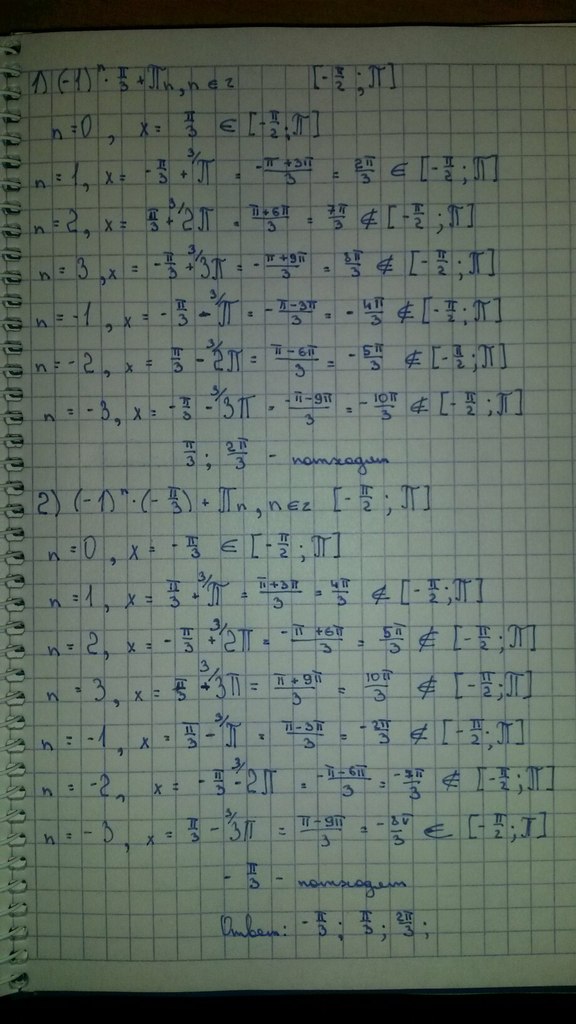 1) (-1)ⁿ · π/3 + Πn, n ∈ z [-π/2 ; Π]
n = 0, x = π/3 ∈ [-π/2 ; Π]
n = 1, x = -π/3 + ³/Π = -π+3π/3 = 2π/3 ∈ [-π/2 ; Π]
n = 2, x = π/3 + ³/2Π = π+6π/3 = 7π/3 ∉ [-π/2 ; Π]
n = 3, x = -π/3 + ³/3Π = -π+9π/3 = 8π/3 ∉ [-π/2 ; Π]
n = -1, x = -π/3 - ³/Π = -π-3π/3 = -4π/3 ∉ [-π/2 ; Π]
n = -2, x = π/3 - ³/2Π = π-6π/3 = -5π/3 ∉ [-π/2 ; Π]
n = -3, x = -π/3 - ³/3Π = -π-9π/3 = -10π/3 ∉ [-π/2 ; Π]
π/3 ; 2π/3 - потходят
2) (-1)ⁿ · (-π/3) + Πn, n ∈ z [-π/2 ; Π]
n = 0, x = -π/3 ∈ [-π/2 ; Π]
n = 1, x = π/3 + ³/Π = π+3π/3 = 4π/3 ∉ [-π/2 ; Π]
n = 2, x = -π/3 + ³/2Π = -π+6π/3 = 5π/3 ∉ [-π/2 ; Π]
n = 3, x = π/3 + ³/3Π = π+9π/3 = 10π/3 ∉ [-π/2 ; Π]
n = -1, x = π/3 - ³/Π = π-3π/3 = -2π/3 ∉ [-π/2 ; Π]
n = -2, x = -π/3 - ³/2Π = -π-6π/3 = -7π/3 ∉ [-π/2 ; Π]
n = -3, x = π/3 - ³/3Π = π-9π/3 = -8π/3 ∈ [-π/2 ; Π]
-π/3 - потходят
Ответ: -π/3 ; π/3 ; 2π/3 ;